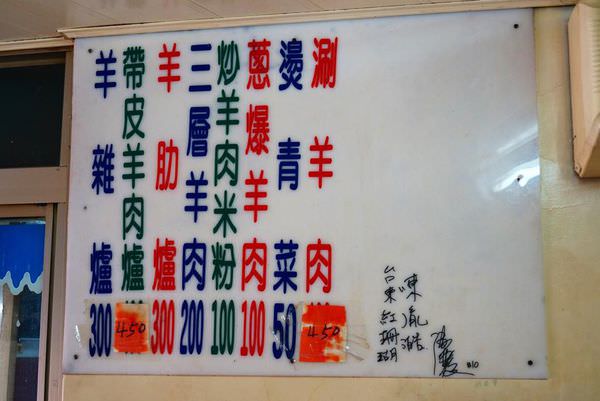 涮羊肉 450
燙青菜 50
蔥爆羊肉 100
炒羊肉米粉 100
三層羊肉 200
羊肋爐 300
帶皮羊肉爐 450
羊雜爐 300
台東
紅珊瑚